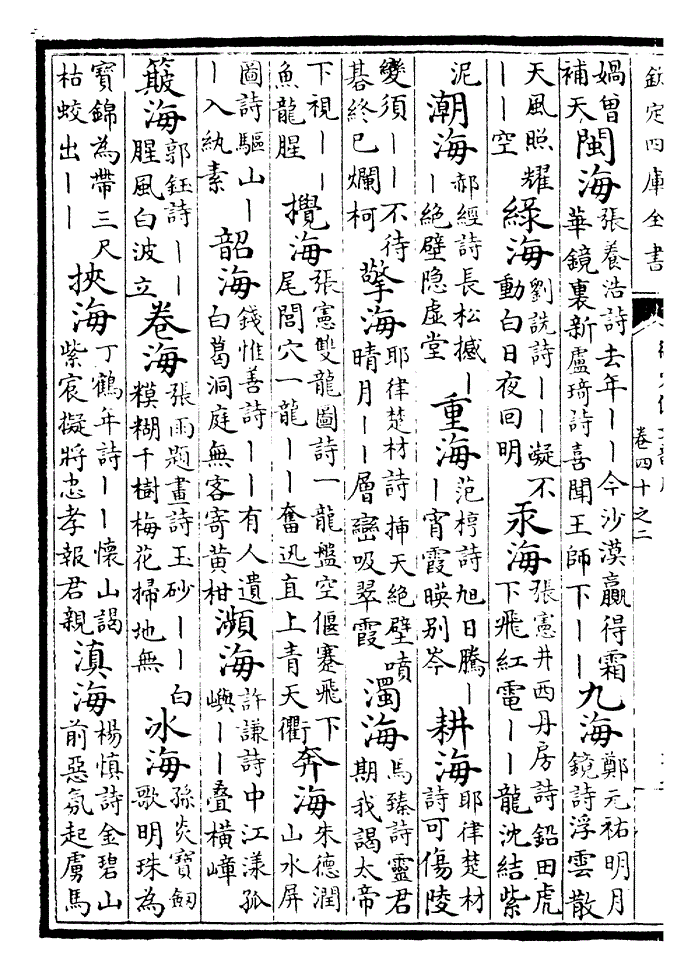 欽定四庫全書
卷四十之二
媧曾補天閩海張養浩詩去年丨丨今沙漠贏得霜華鏡裏新盧琦詩喜聞王師下丨丨九海鄭元祐明月鏡詩浮雲散
天風照耀丨丨空綠海劉詵詩丨丨凝不動白日夜回明汞海張憲井西丹房詩鉛田虎下飛紅電丨丨龍沈結紫
泥潮海郝經詩長松撼丨丨絕壁隐虛堂重海范梈詩旭日騰丨丨霄霞暎别岑耕海耶律楚材詩可傷陵
變須丨丨不待碁終已爛柯擎海耶律楚材詩揷天絕壁噴晴月丨丨層巒吸翠霞濁海馬臻詩靈君期我謁太帝
下視丨丨魚龍腥攪海張憲雙龍圖詩一龍盤空偃蹇飛下尾閭穴一龍丨丨奮迅直上青天衢奔海朱德潤山水屏
圖詩驅山丨丨入紈素韶海錢惟善詩丨丨有人遺白葛洞庭無客寄黄柑瀕海許謙詩中江漾孤嶼丨丨叠橫嶂
簸海郭鈺詩丨丨腥風白波立卷海張雨題畫詩玉砂丨丨白糢糊千樹梅花掃地無冰海孫炎寶劒歌明珠為
寳錦為帶三尺枯蛟出丨丨挾海丁鶴年詩丨丨懷山謁紫宸擬將忠孝報君親滇海楊慎詩金碧山前惡氛起虜馬